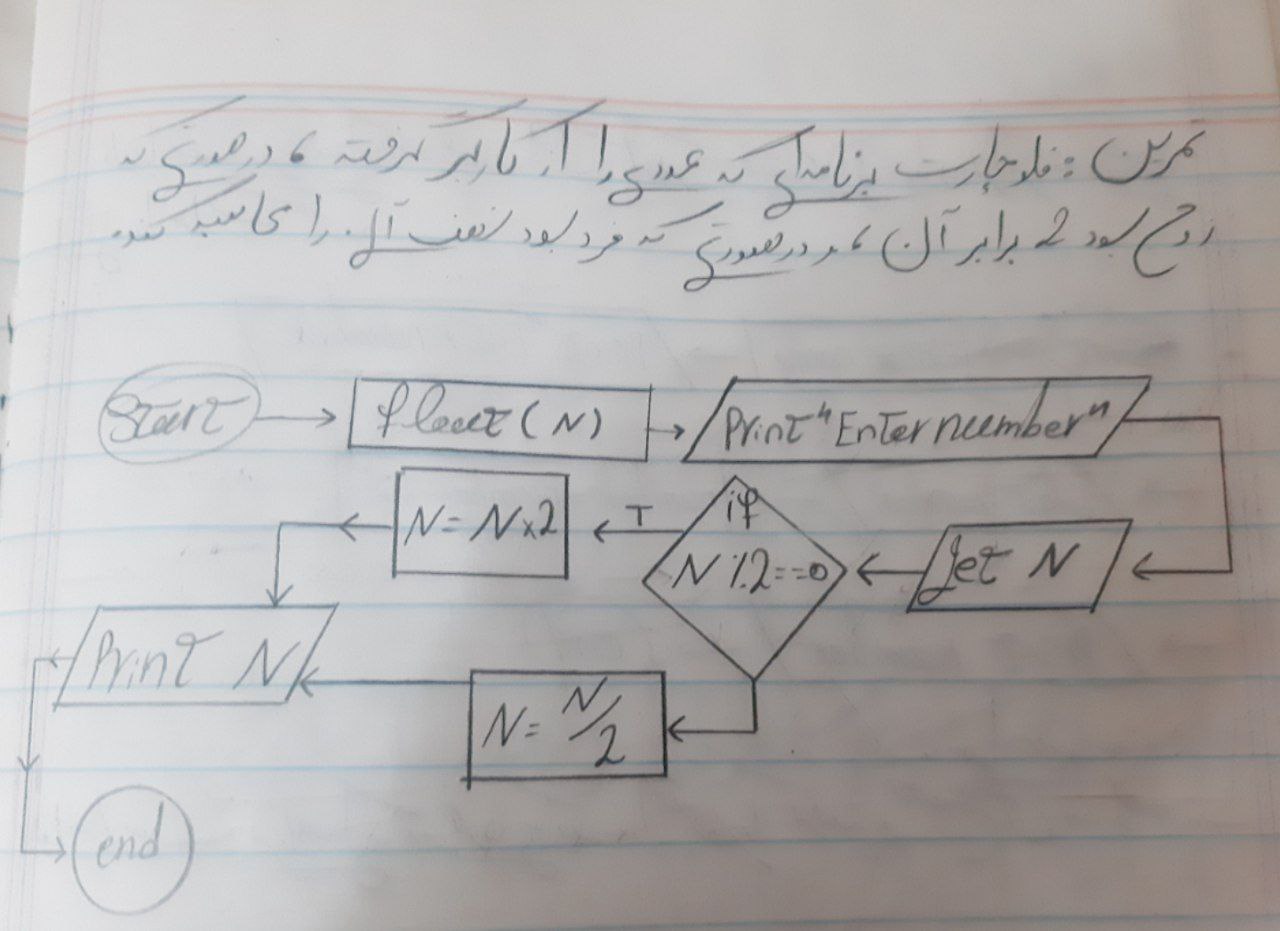 تمرین : فلوچارت برنامه‌ای که عددی را از کاربر گرفته ، درصورتی که
زوج بود 2 برابر آن ، و درصورتی که فرد بود نصف آن را محاسبه کند.
Start
float (N)
Print "Enter number"
Get N
if
N % 2 == 0
T
N = N x 2
N = N/2
Print N
end